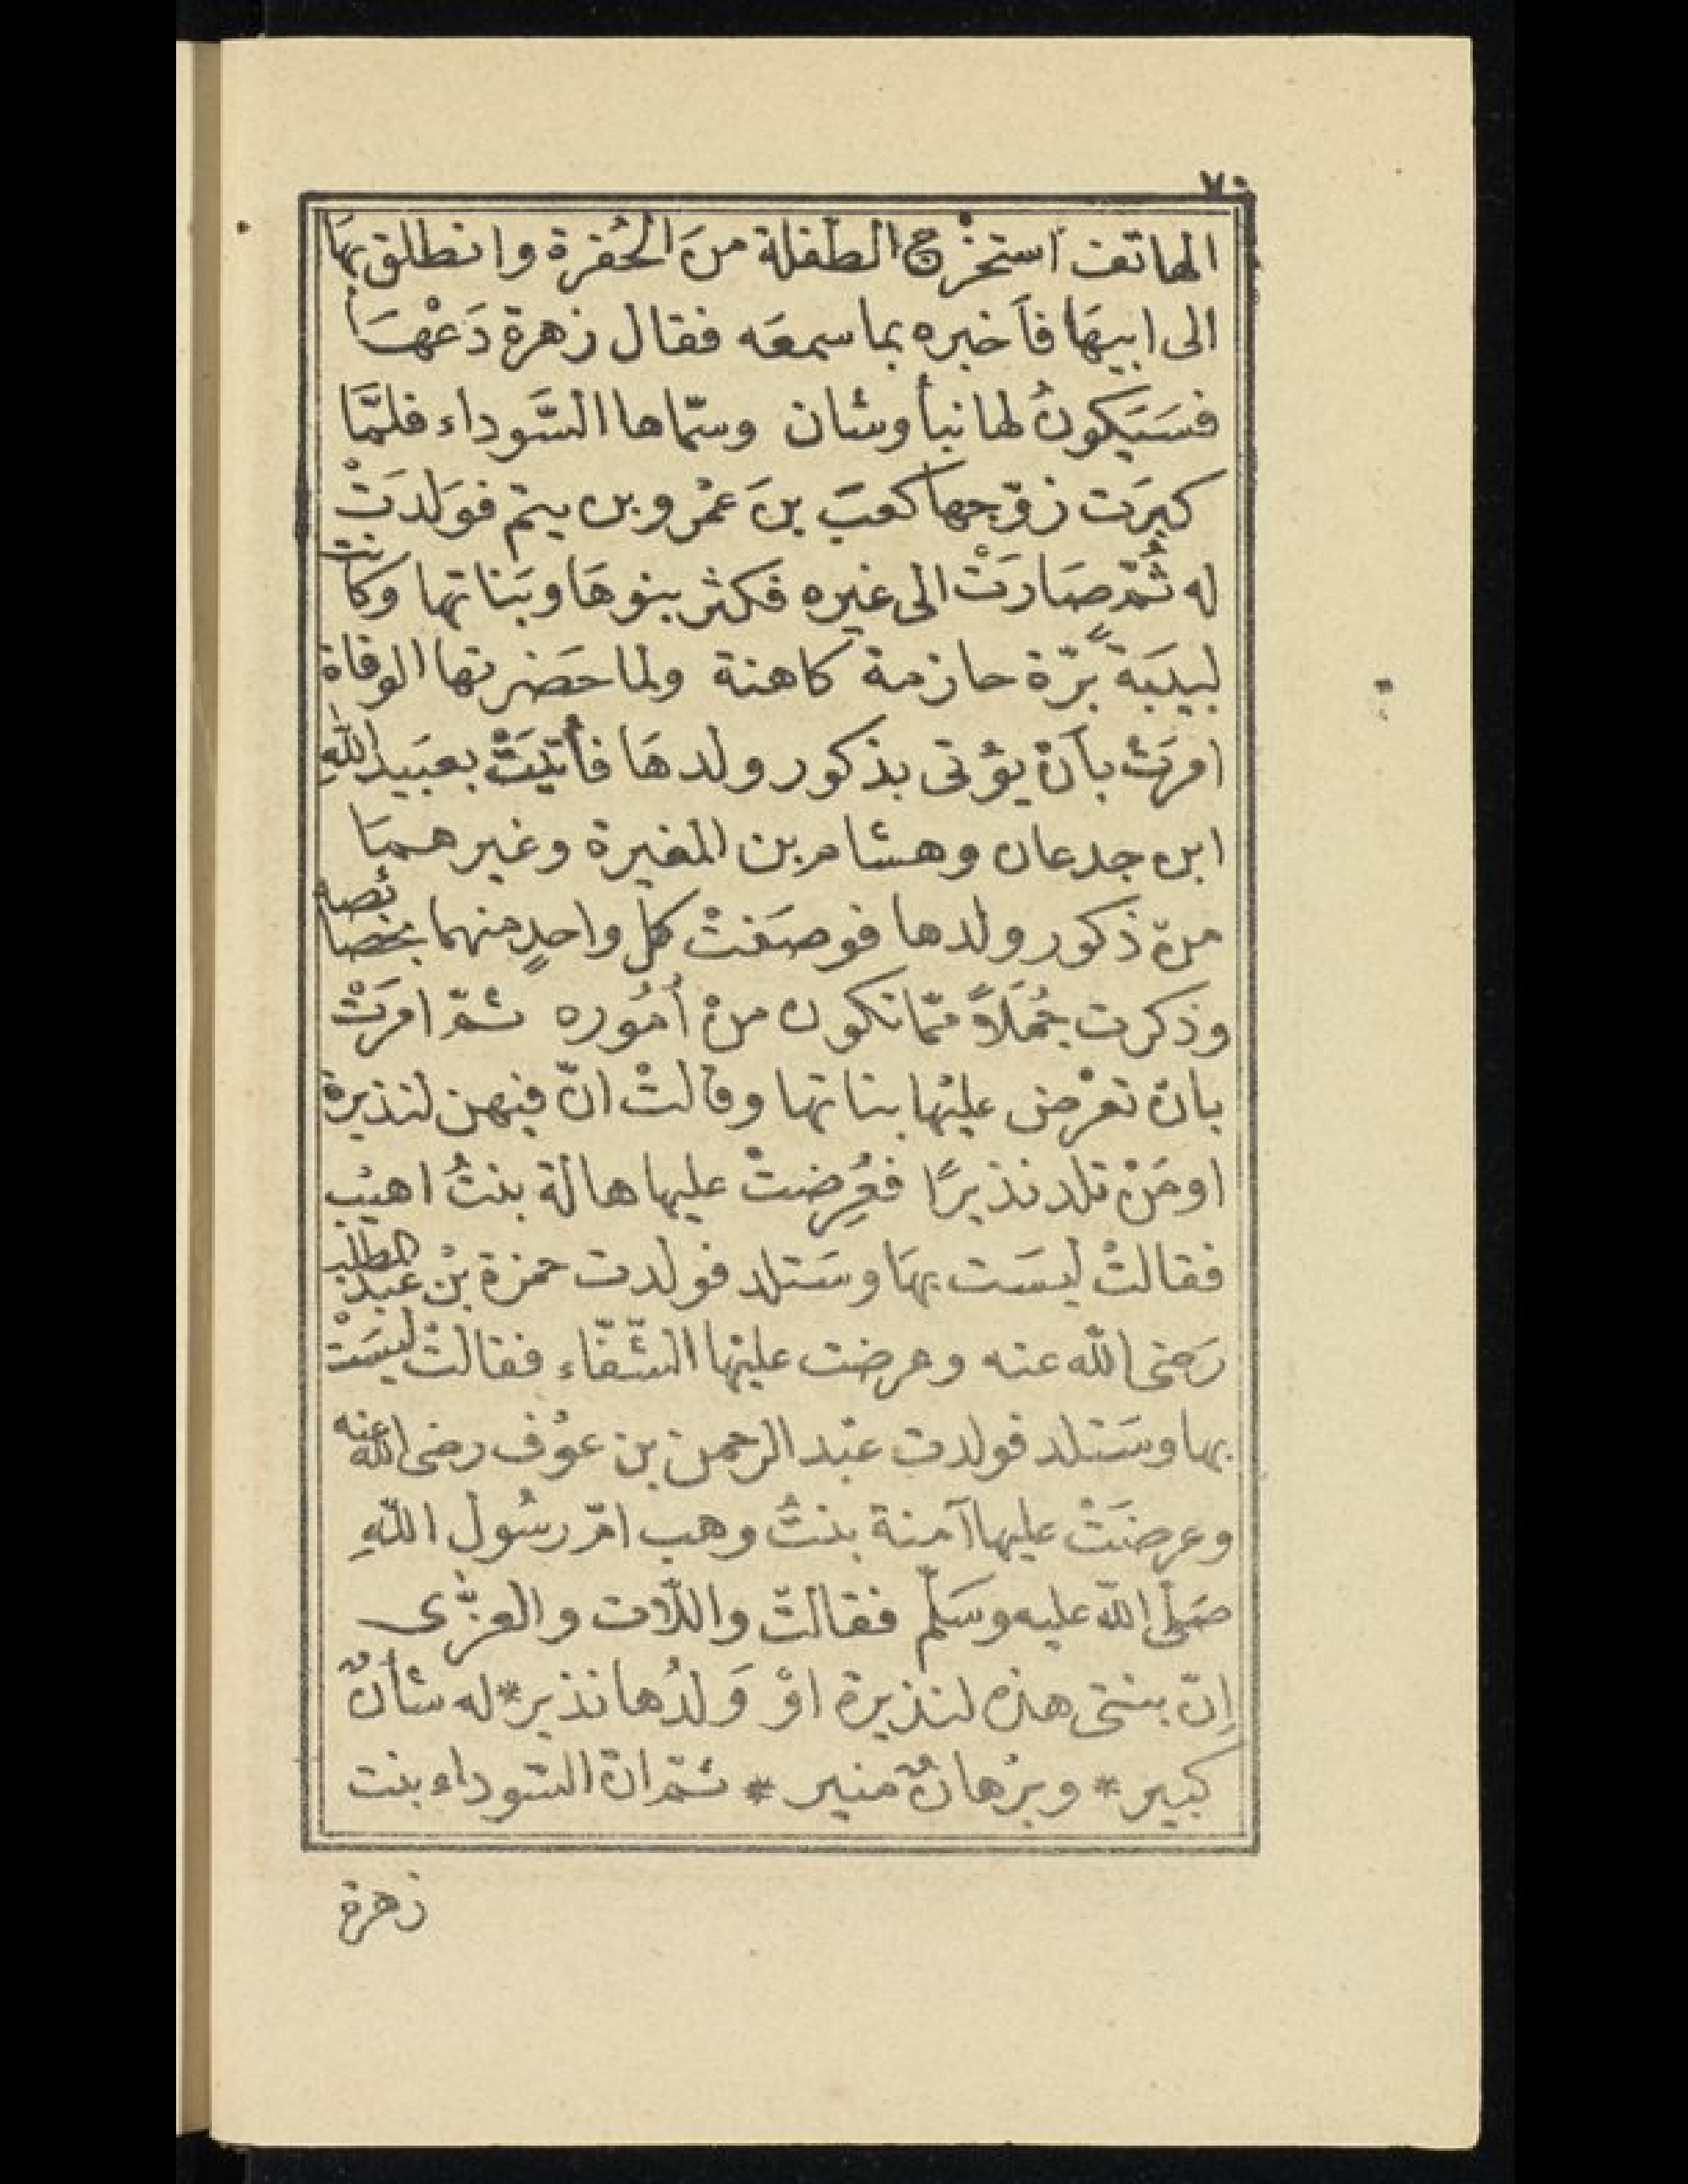 ٧٠
الهاتف استخرج الطفلة منَ الحُفرة وانطلق بهَا
الى ابيهَا فاَخبره بما سمعَه فقال زهرة دَعْهَا
فسَيَكونُ لها نبأ وشان وسمّاها السَّوداء فلمَّا
كبرَت زوّجها كعبَ بنَ عمْرو بن يتم فوَلدَتْ
له ثُمّ صَارَتْ الى غيره فكثر بنوهَا وبَناتها وكانت
لبيبَة بَّرّة حازمة كاهنة ولما حَضرتها الوفاة
امرَتْ بأنْ يؤتى بذكور ولدهَا فأتيَتْ بعبَيد اللهِ
ابن جدعان وهشام بن المغيرة وغيرهمَا
منْ ذكور ولدها فوصَفتْ كل واحدٍ منهما بخصائصه
وذكرت جُمَلاً ممّا تكون منْ أمُوره ثمّ امرَتْ
بانْ تعْرض عليْها بناتها وقالتْ انّ فيهن لنذيرة
او مَنْ تلد نذيرًا فعُرِضتْ عليها هالة بنتُ اهيْب
فقالتْ ليسَت بهَا وسَتلد فولدت حمزة بنْ عبد المطلب
رَضى اللّه عنه وعرضت عليْها الشّفّاء فقالتْ ليسَتْ
بها وسَتلد فولدت عبْد الرحمن بن عوْف رضى الله عنه
وعرضتْ عليها آمنة بنتُ وهب امّ رسُول اللّهِ
صَلّى اللّه عليه وسَلّم فقالتْ واللّات والعزّى
اِنّ بنتى هذه لنذيرة اوْ وَلدُها نذير * له شأنٌ
كبير * وبرْهانٌ منير * ثمّ انّ السّوداء بنت
زهرة